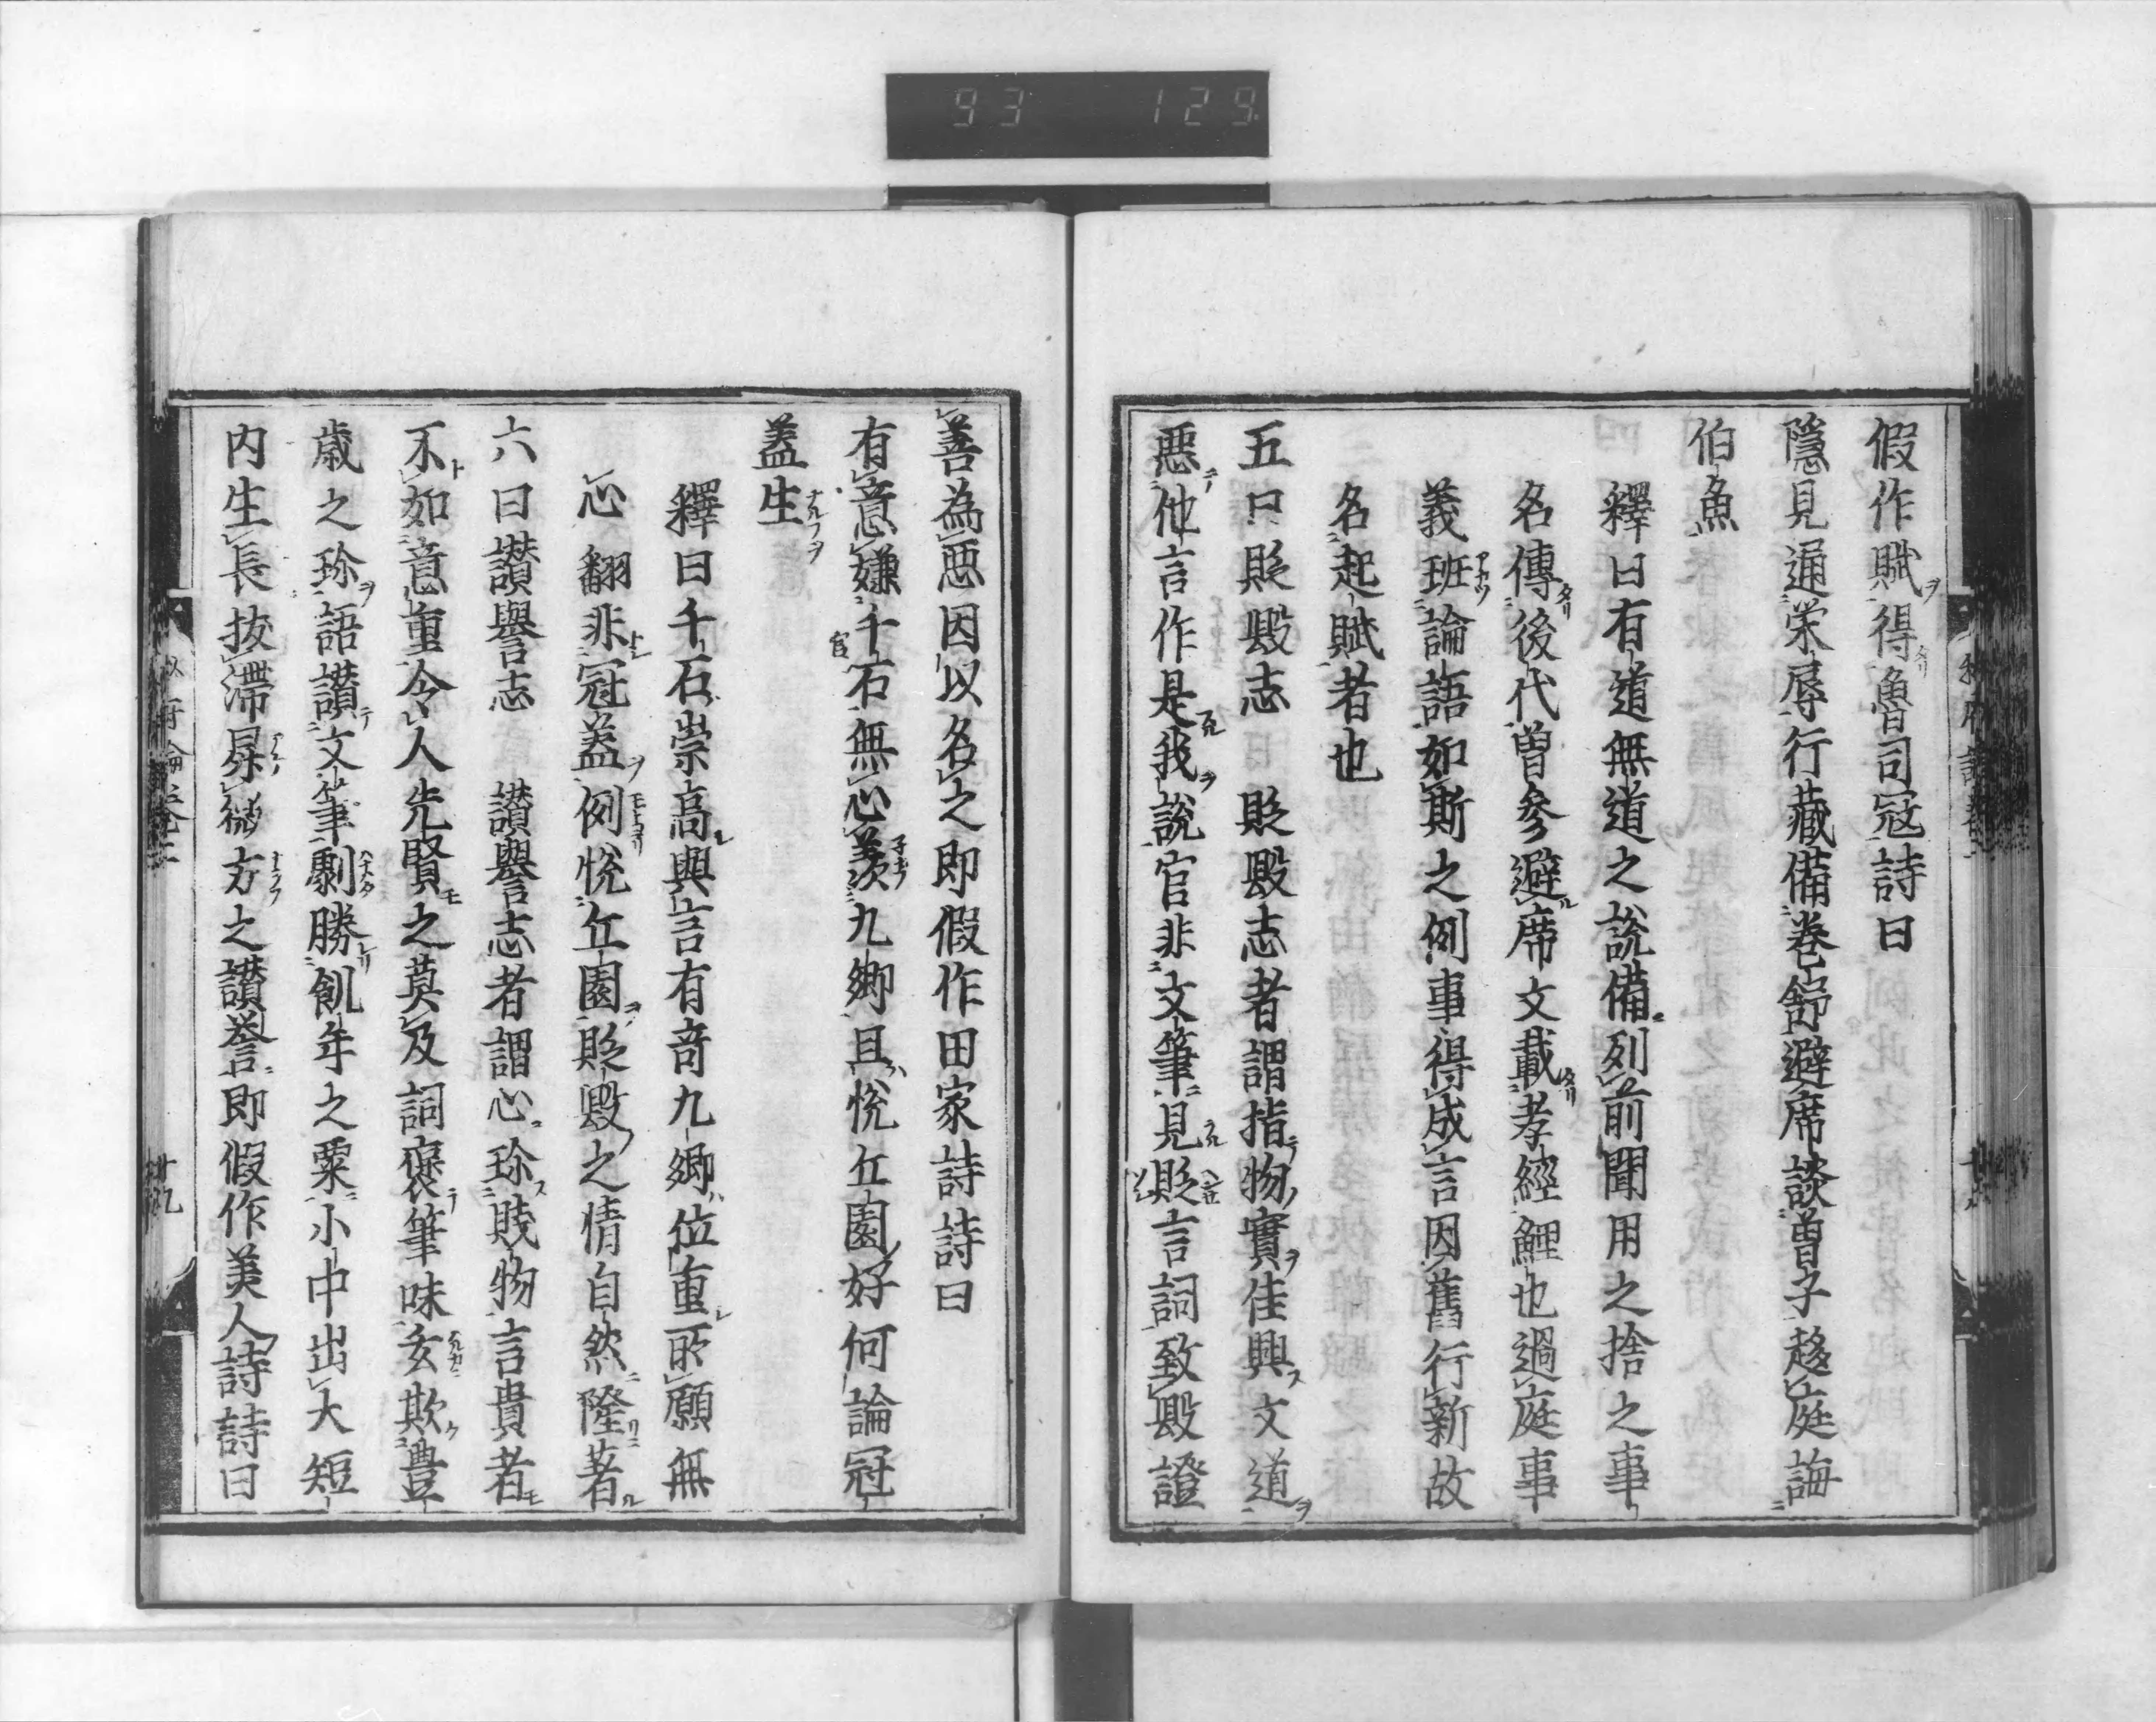 93 129
假作賦得魯司冦詩曰
隱見通榮辱行藏備卷舒避席談曽子趍庭誨
伯魚
釋曰有道無道之說備列前聞用之捨之事
名傳後代曽參避席文載孝經鯉也過庭事
義班論語如斯之例事得成言因舊行新故
名起賦者也
五曰貶毀志　貶毀志者謂指物實佳興文道
惡他言作是我說官非文筆見貶言詞致毀證
善為惡因以名之即假作田家詩詩曰
有意嫌千石無心羨九卿且悅丘園好何論冠
盖生
釋曰千石崇高與言有奇九卿位重所願無
心翻非冠盖例悅丘園貶毀之情自然隆著
六曰讃譽志　讃譽志者謂心珎賎物言貴者
不如意重令人先賢之莫及詞褒筆味玄欺豊
歳之珎語讃文筆剰勝飢年之粟小中出大短
内生長抜滞昇㣲方之讃誉即假作美人詩詩曰